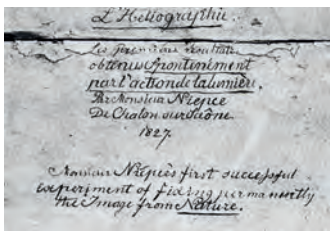 L'Heliographie.
Les premiers resultats
obtenus Spontanement
par l'action de la lumière.
Par Monsieur Niepce
De Chalon sur Saone.
1827.
Monsieur Niepce's first successful
experiment of fixing permanently
the Image from Nature.